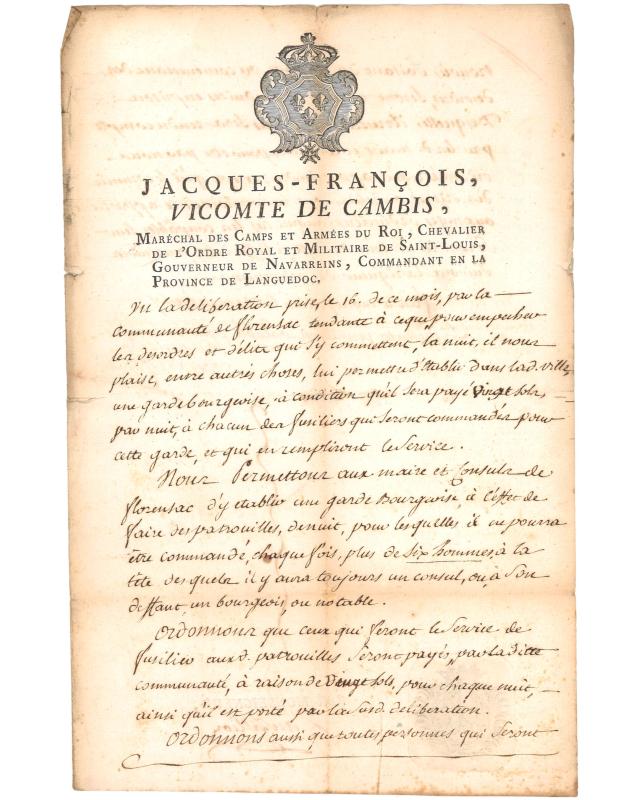 JACQUES-FRANÇOIS,
VICOMTE DE CAMBIS,
MARÉCHAL DES CAMPS ET ARMÉES DU ROI, CHEVALIER
DE L'ORDRE ROYAL ET MILITAIRE DE SAINT-LOUIS,
GOUVERNEUR DE NAVARREINS, COMMANDANT EN LA
PROVINCE DE LANGUEDOC,
Vu la deliberation prise, le 16. de ce mois, par la
communauté de florensac tendante à ceque, pour empecher
les desordres et délits qui s'y commettent, la nuit, il nous
plaise, entre autrés choses, lui permettre d'établir dans lad. ville,
une garde bourgeoise, à condition qu'il sera payé vingt sols
par nuit, à chacun des fusiliers qui seront commandés pour
cette garde, et qui en rempliront le service.
Nous Permettons aux maire et Consuls de
florensac d'y etablir une garde Bourgeoise, à l'effet de
faire des patrouilles, de nuit, pour les quelles il ne pourra
être commandé, chaque fois, plus de six hommes, à la
tête des quels il y aura toujours un consul, ou, à son
deffaut, un bourgeois, ou notable.
Ordonnons que ceux qui feront le service de
fusilier aux d. patrouilles seront payés, par la ditte
communauté, à raison de vingt sols, pour chaque nuit,
ainsi qu'il est porté par la susd. deliberation.
Ordonnons aussi que toutes personnes qui seront